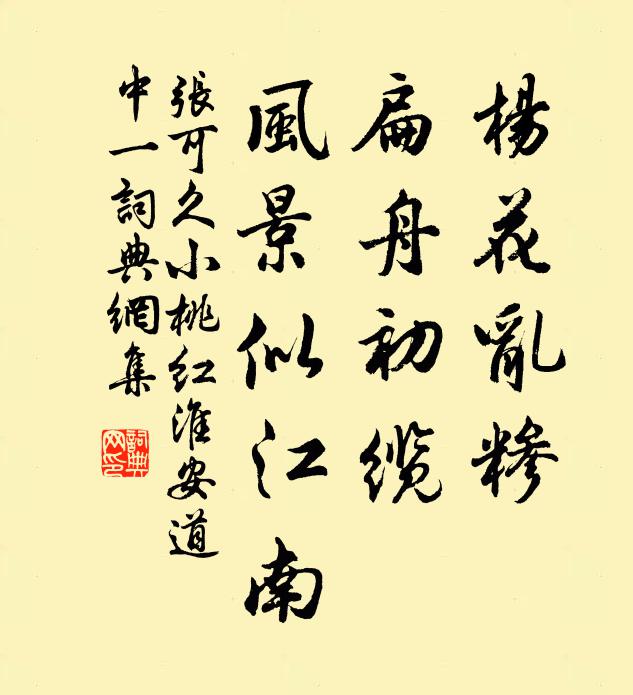 楊花亂糝
扁舟初纜
風景似江南
張可久小桃紅淮安道
中一詞典網集
詞典网印